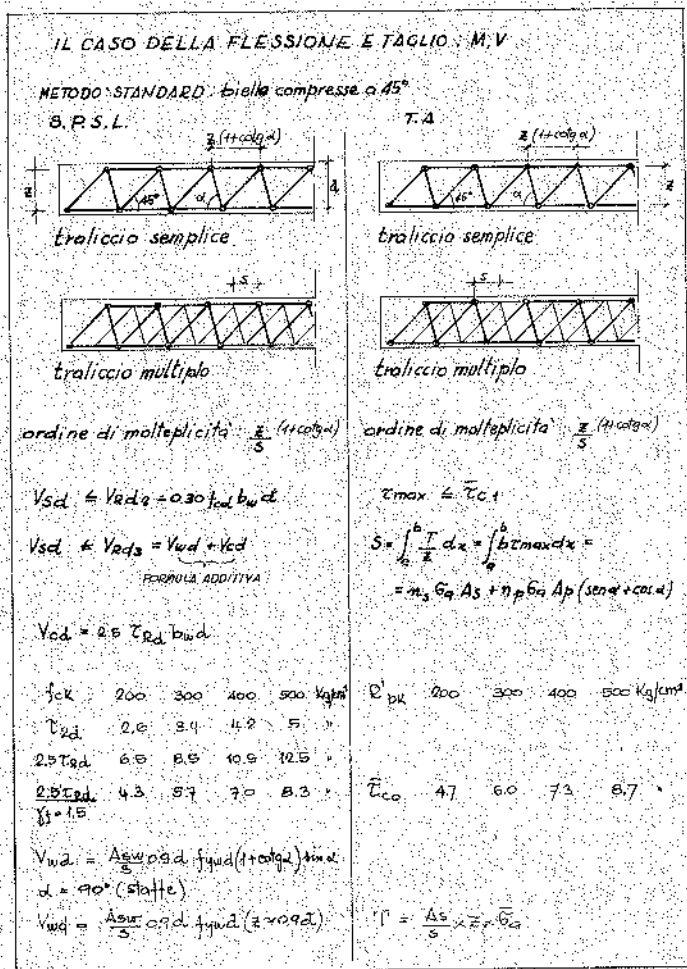 IL CASO DELLA FLESSIONE E TAGLIO: M,V
METODO STANDARD: bielle compresse a 45°
S.P.S.L.
z (1+cotgα)
z
45°
α
d
traliccio semplice
s
traliccio multiplo
ordine di molteplicità z/s (1+cotgα)
Vsd ≤ VRd2 = 0.30 fcd bw d
Vsd ≤ VRd3 = Vwd + Vcd
FORMULA ADDITIVA
Vcd = 2.5 τRd bw d
fck 200 300 400 500 Kg/cm²
τRd 2.6 3.4 4.2 5 "
2.5τRd 6.5 8.5 10.5 12.5 "
2.5τRd/γf=1.5 4.3 5.7 7.0 8.3 "
Vwd = Asw/s 0.9d fywd (1+cotgα) sin α
α = 90° (staffe)
Vwd = Asw/s 0.9d fywd (z=0.9d)
T.A
z (1+cotgα)
45°
α
z
traliccio semplice
s
traliccio multiplo
ordine di molteplicità z/s (1+cotgα)
τmax ≤ τ̄c1
S = ∫ₐᵇ T/z dx = ∫ₐᵇ bτmax dx =
= ns σa As + np σa Ap (senα+cosα)
R'bk 200 300 400 500 Kg/cm²
τ̄co 4.7 6.0 7.3 8.7 "
T = As/s × z × σ̄a